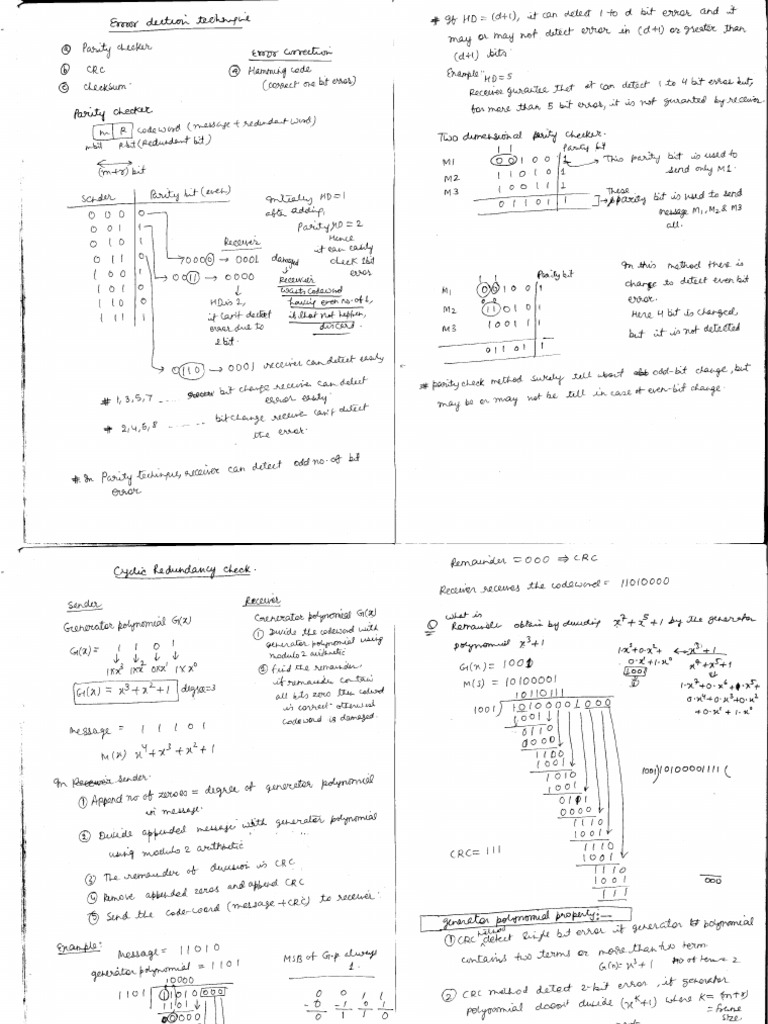 Error dection technique
(a) Parity checker
(b) CRC
(c) checksum
Error Correction
(a) Hamming code
(correct one bit error)
Parity checker
m R codeword (message + redundant word)
mbit Rbit (Redundant bit)
(m+r) bit
Sender Parity bit (even)
0 0 0 0
0 0 1 1
0 1 0 1
0 1 1 0
1 0 0 1
1 0 1 0
1 1 0 0
1 1 1 1
Initially HD=1
after adding,
Parity HD = 2
Hence
it can easily
check 1bit
error
Receiver
0000 → 0001
0011 → 0000
HD is 2,
it can't detect
error due to
2 bit.
damaged
Receiver
wants codeword
having even no. of 1,
if that not happen,
discard.
0110 → 0001 receiver can detect easily
# 1, 3, 5, 7 ..... bit change receiver can detect
error easily.
# 2, 4, 6, 8 ...... bit change receive can't detect
the error.
# In Parity techinque, receiver can detect odd no. of bit
error
# If HD = (d+1), it can detect 1 to d bit error and it
may or may not detect error in (d+1) or greater than
(d+1) bits.
Example:- HD = 5
Receiver gurantee that it can detect 1 to 4 bit error but,
for more than 5 bit error, it is not guranted by receiver.
Two dimensional parity checker.
1 1 Parity bit
M1 0 0 1 0 0 1 → This parity bit is used to
send only M1.
M2 1 1 0 1 0 1
M3 1 0 0 1 1 1
0 1 1 0 1 1 These parity bit is used to send
message M1, M2 & M3
all.
1 1 Parity bit
M1 0 0 1 0 0 1
M2 1 1 0 1 0 1
M3 1 0 0 1 1 1
0 1 1 0 1 1
In this method there is
change to detect even bit
error.
Here 4 bit is changed,
but it is not detected
# parity check method surely tell about odd-bit change, but
may be or may not be tell in case of even-bit change.
Cyclic Redundancy check.
Sender
Generator polynomial G(x)
G(x) = 1 1 0 1
1×x³ 1×x² 0×x¹ 1×x⁰
G(x) = x³ + x² + 1 degree = 3
message = 1 1 1 0 1
M(x) x⁴ + x³ + x² + 1
Receiver
Generator polynomial G(x)
(1) Divide the codeword with
generator polynomial using
modulo 2 arithmetic
(2) find the remainder
if remainder contain
all bits zero the codword
is correct otherwise
codeword is damaged.
In Sender.
(1) Append no of zeroes = degree of generator polynomial
in message.
(2) Divide appended message with generator polynomial
using modulo 2 arithmetic
(3) The remainder of division is CRC
(4) Remove appended zeros and append CRC
(5) Send the code-word (message + CRC) to receiver.
Example:
message = 11010
generator polynomial = 1101
10000
1101 ) 11010 000
1101
00000
MSB of G.p always
1.
0 0 1 1
-0 -1 -0 -1
0 1 1 0
Remainder = 000 ⇒ CRC
Receiver receives the codeword = 11010000
Q what is
Remainder obtain by dividing x⁷ + x⁵ + 1 by the generator
polynomial x³+1
G(x) = 1001
M(S) = 10100001
1·x³+0·x²+ ← x³+1
0·x¹+1·x⁰
1001
x⁷+x⁵+1
1·x⁷+0·x⁶+1·x⁵+
0·x⁴+0·x³+0·x²
+0·x¹+1·x⁰
10110111
1001 ) 10100001 000
1001
0110
0000
1100
1001
1010
1001
0111
0000
1110
1001
1110
1001
1110
1001
111
CRC = 111
1001)10100001111(
000
generator polynomial property:-
(1) CRC method detect single bit error if generator polynomial
contains two terms or more than two term
G(x) = x³+1 No of term = 2
(2) CRC method detect 2-bit error, if generator
polynomial doesn't divide (xᴷ+1) where K = (m+r)
= frame
size